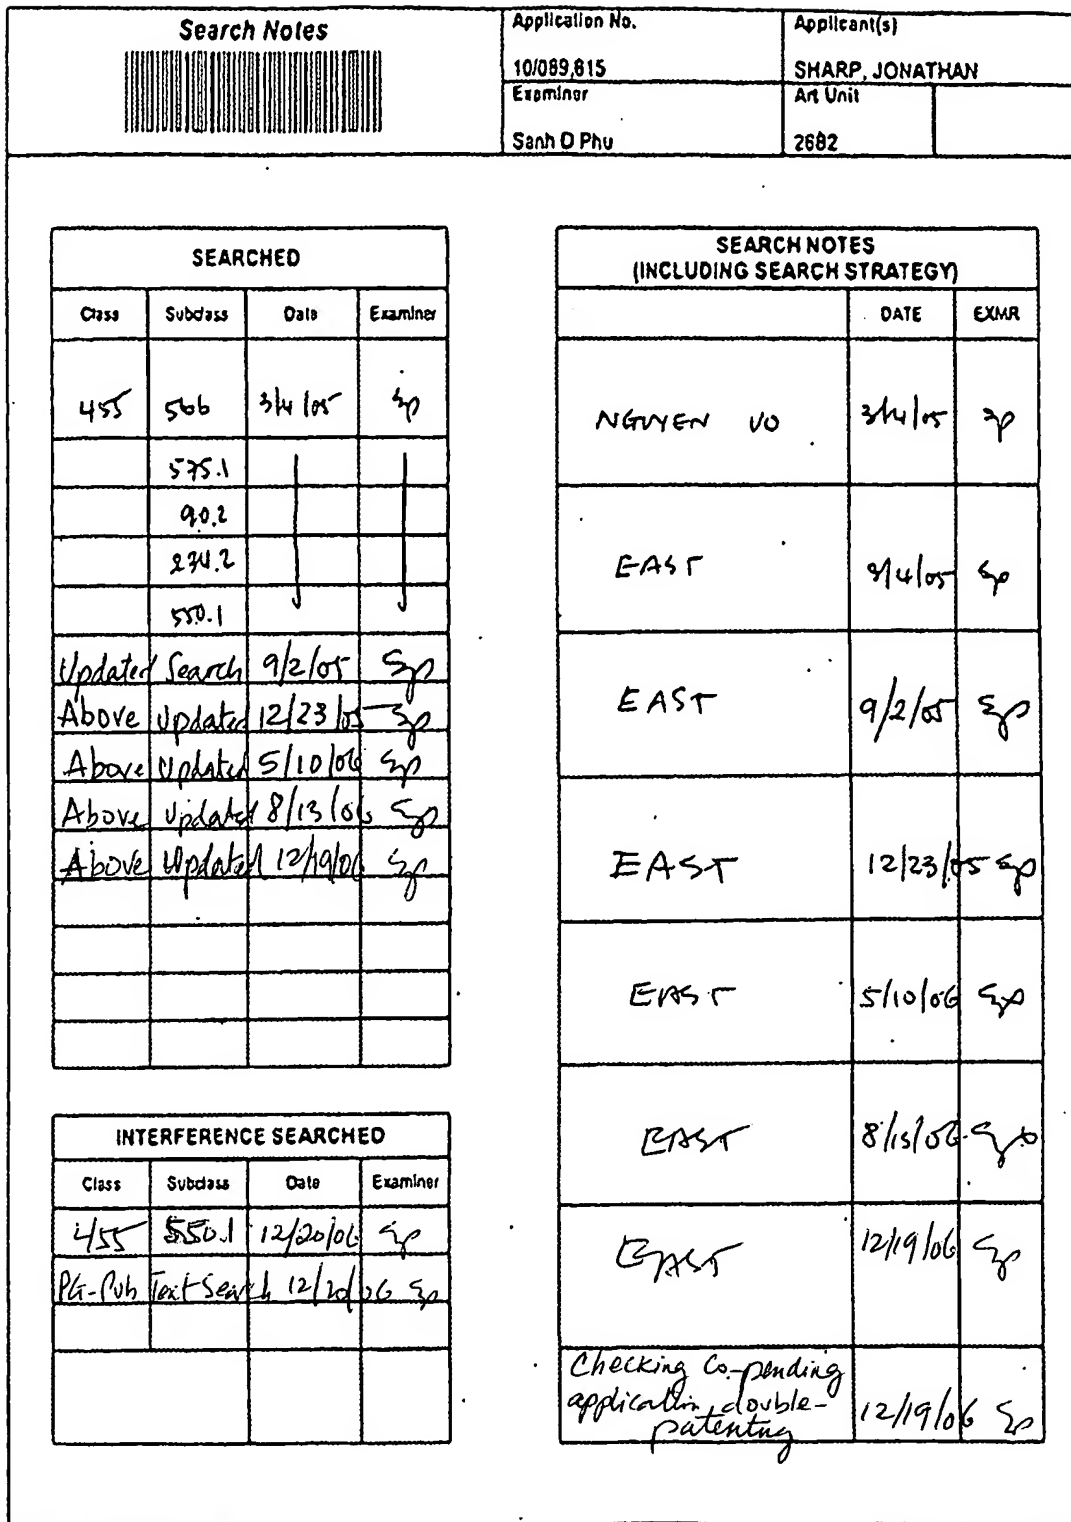 Search Notes
Application No.
Applicant(s)
10/089,815
SHARP, JONATHAN
Examiner
Art Unit
Sanh D Phu
2682
SEARCHED
Class Subclass Date Examiner
455 566 3/4/05 Sp
575.1
90.2
234.2
550.1
Updated Search 9/2/05 Sp
Above Updated 12/23/05 Sp
Above Updated 5/10/06 Sp
Above Updated 8/13/06 Sp
Above Updated 12/19/06 Sp
INTERFERENCE SEARCHED
Class Subclass Date Examiner
455 550.1 12/20/06 Sp
PG-Pub Text Search 12/20/06 Sp
SEARCH NOTES
(INCLUDING SEARCH STRATEGY)
DATE EXMR
NGUYEN VO 3/4/05 Sp
EAST 3/4/05 Sp
EAST 9/2/05 Sp
EAST 12/23/05 Sp
EAST 5/10/06 Sp
EAST 8/13/06 Sp
EAST 12/19/06 Sp
Checking Co-pending
application double-
patenting 12/19/06 Sp